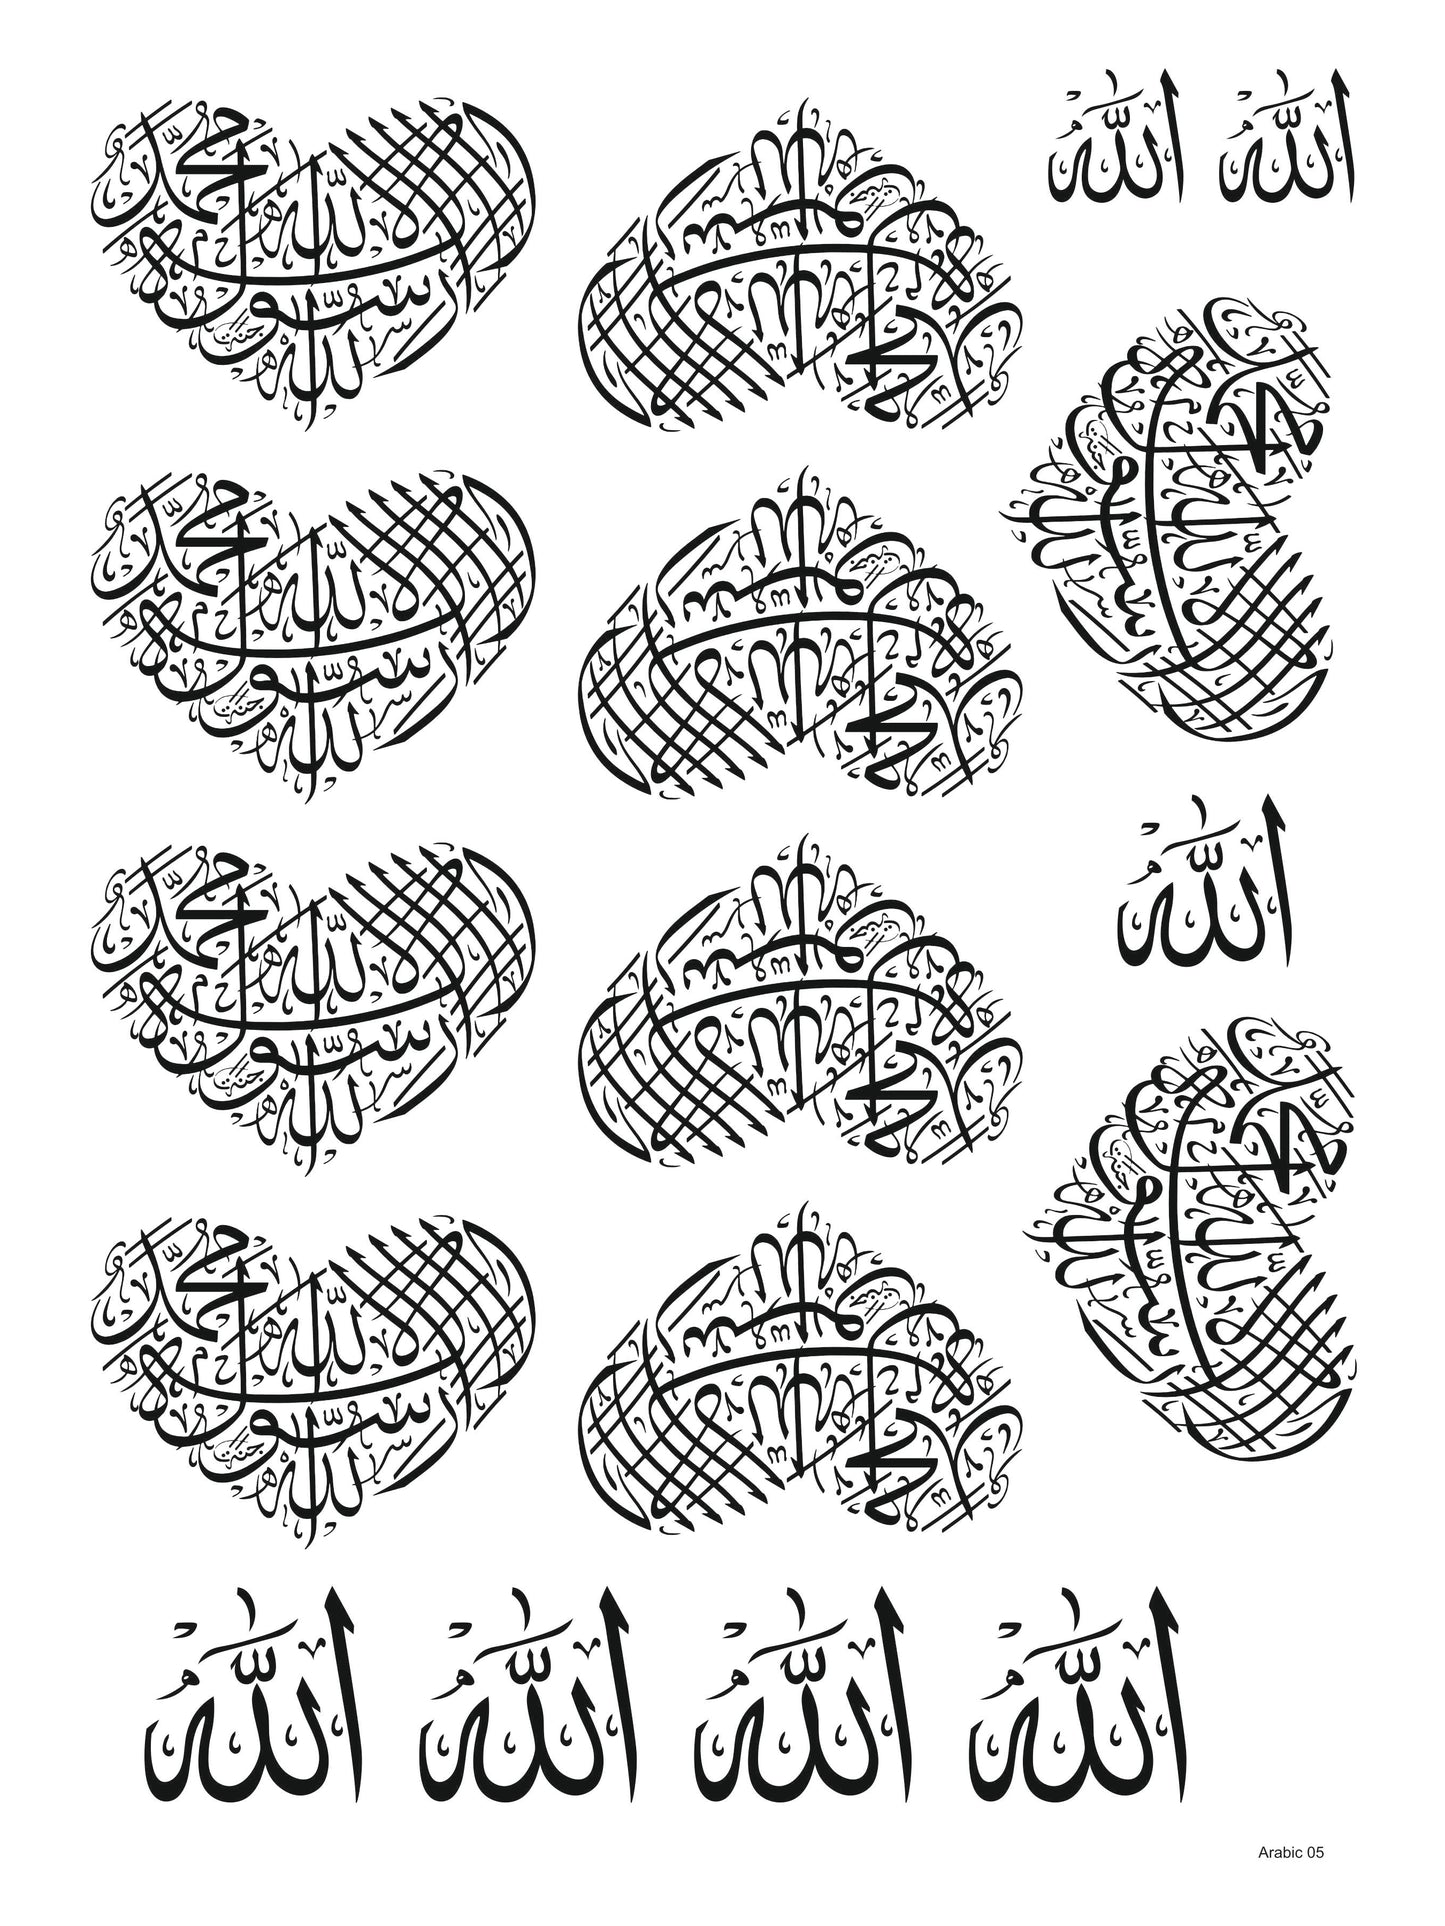 الله الله
لا إله إلا الله محمد رسول الله
لا إله إلا الله محمد رسول الله
لا إله إلا الله محمد رسول الله
لا إله إلا الله محمد رسول الله
لا إله إلا الله محمد رسول الله
لا إله إلا الله محمد رسول الله
الله
لا إله إلا الله محمد رسول الله
لا إله إلا الله محمد رسول الله
لا إله إلا الله محمد رسول الله
لا إله إلا الله محمد رسول الله
الله الله الله الله
Arabic 05